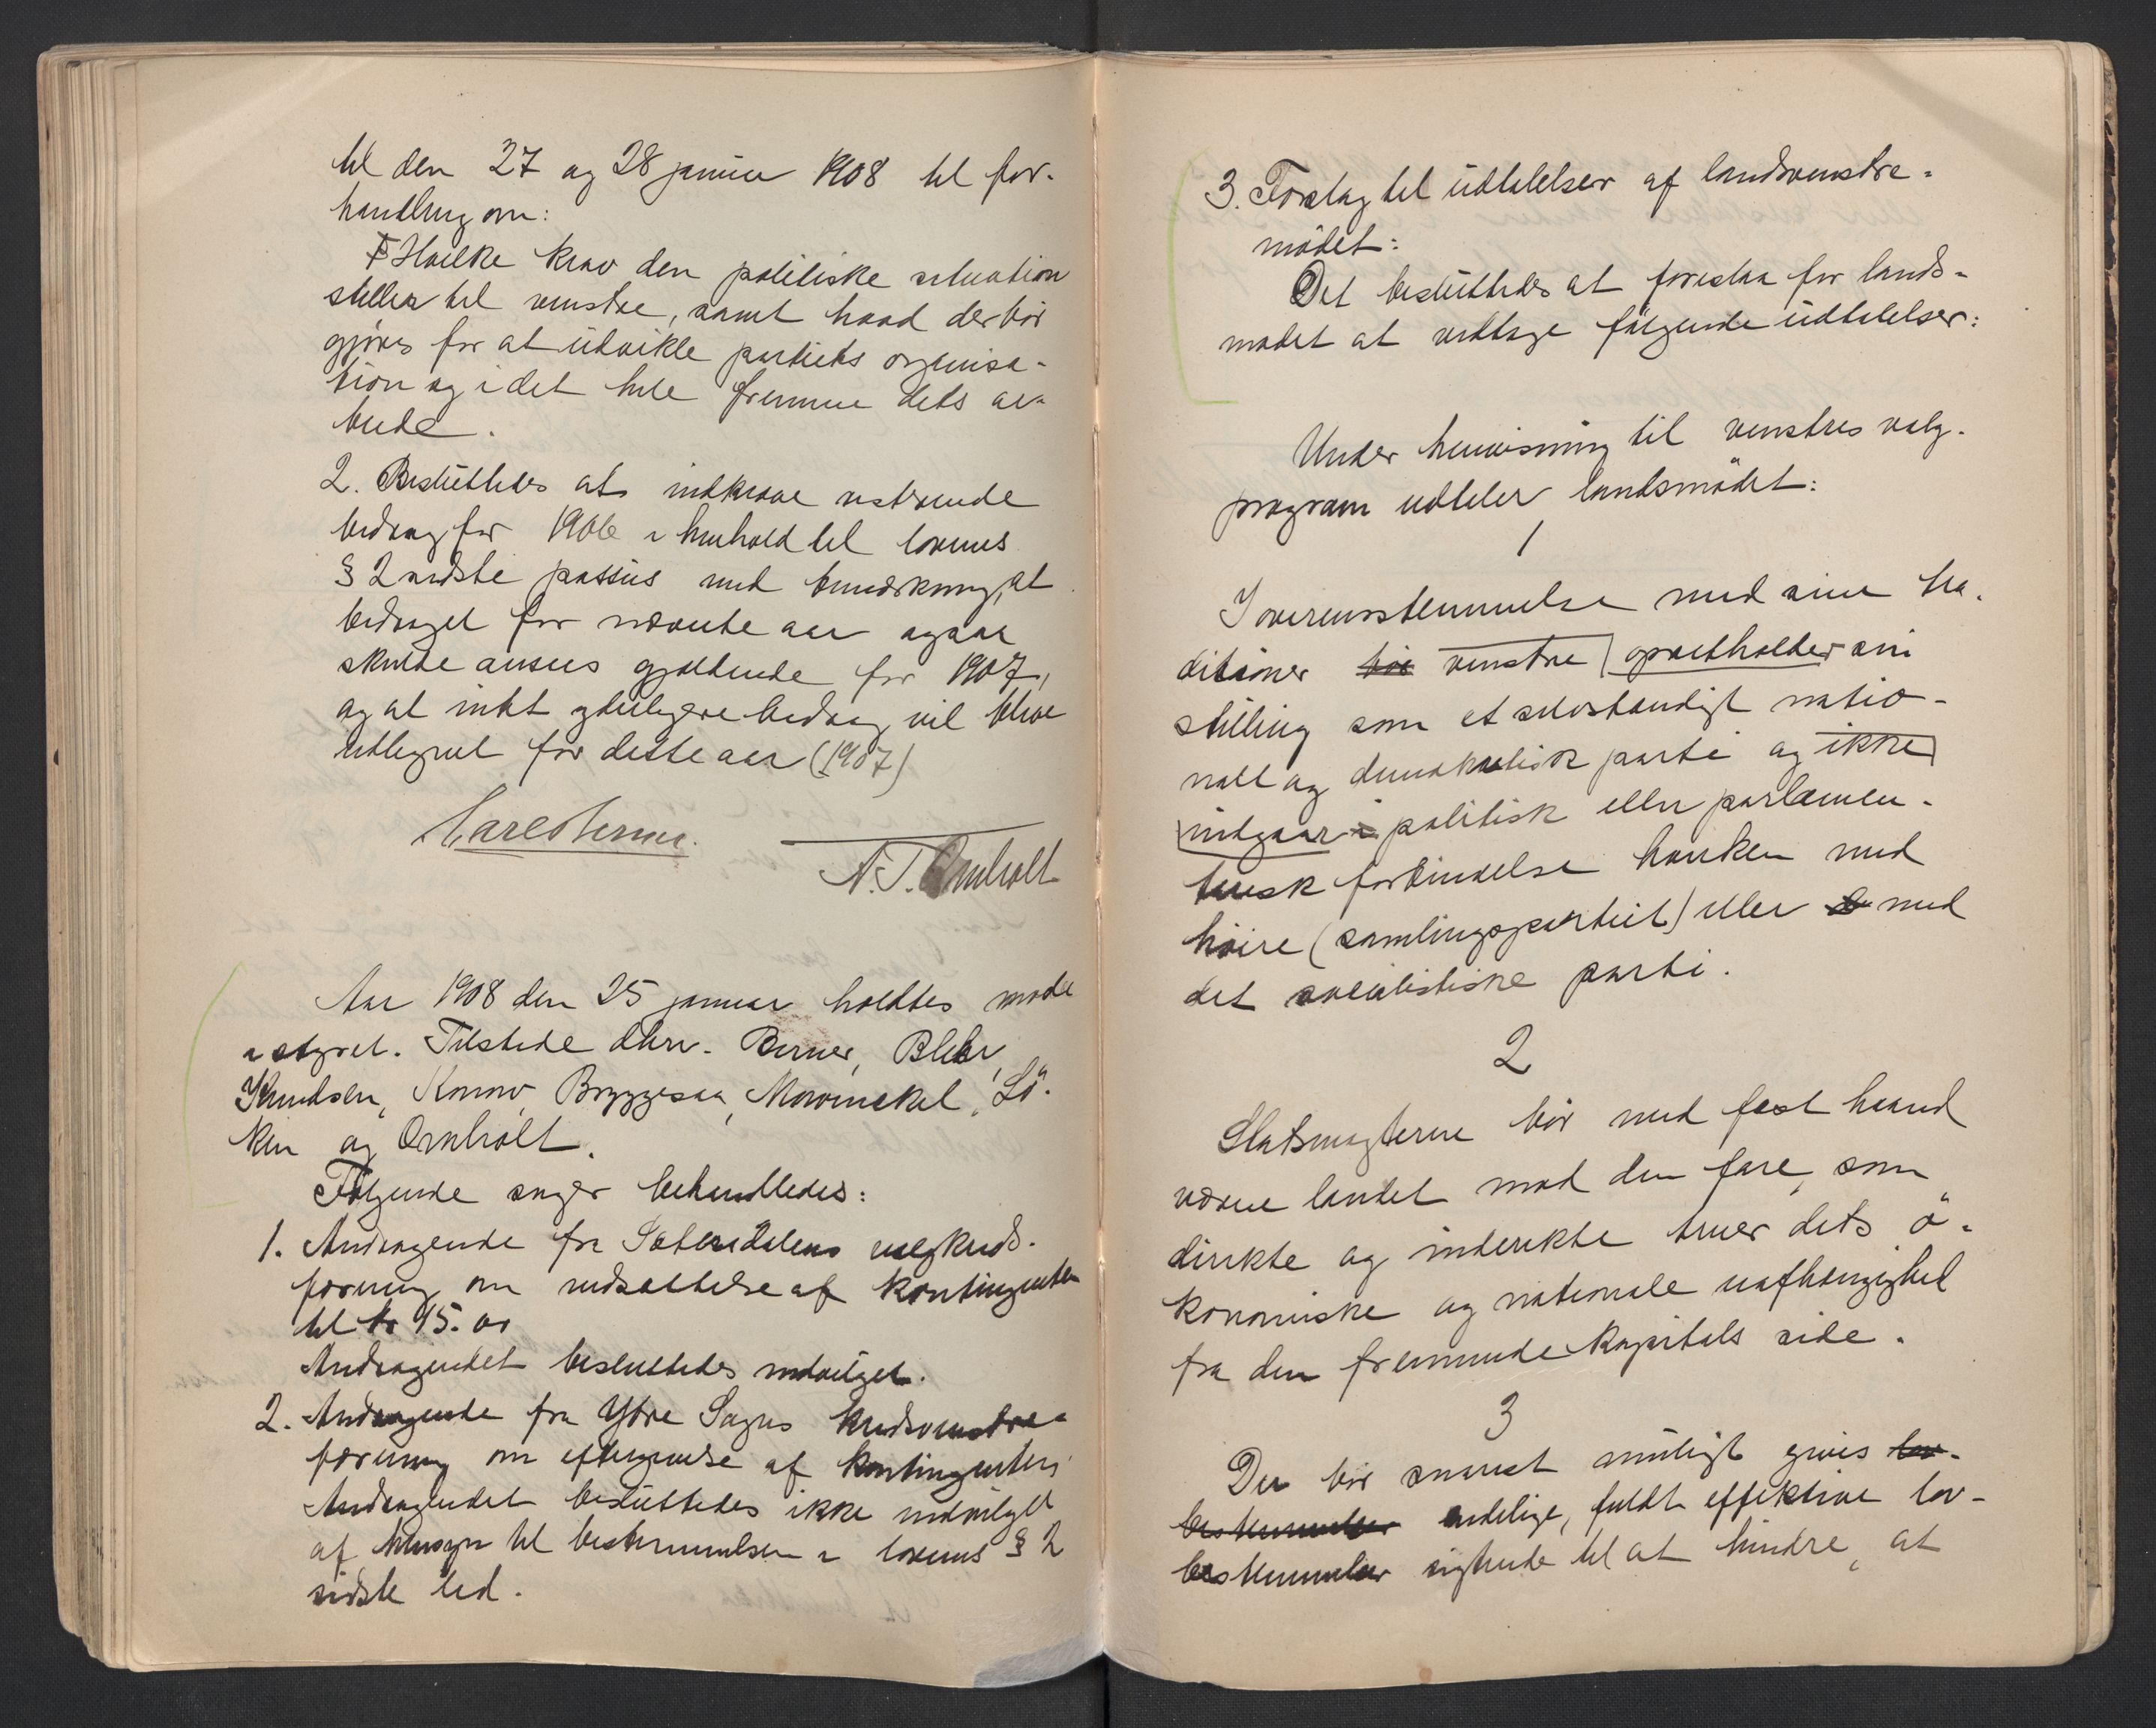 til den 27 og 28 januar 1908 til for-
handling om:
Hvilke krav den politiske situation
stiller til venstre, samt hvad der bør
gjøres for at udvikle partiets organisa-
tion og i det hele fremme dets ar-
beide.
2. Besluttedes at indkræve resterende
bidrag for 1906 i henhold til lovens
§ 2 sidste passus med bemærkning, at
bidraget for nævnte aar ogsaa
skulde ansees gjældende for 1907,
og at intet yderligere bidrag vil blive
udlignet for dette aar (1907)
Carl Berner.
N.T. Omholt
Aar 1908 den 25 januar holdtes møde
i styret. Tilstede dhrr. Berner, Blehr,
Knudsen, Konow, Bryggesaa, Mowinckel, Lö-
ken og Omholt.
Følgende sager behandledes:
1. Andragende fra Sætersdalens valgkreds-
forening om nedsættelse af kontingenten
til kr 15.00
Andragendet besluttedes indvilget.
2. Andragende fra Ytre Sogns kredsvenstre-
forening om eftergivelse af kontingenten.
Andragendet besluttedes ikke indvilget
af hensyn til bestemmelsen i lovens § 2
sidste led.
3. Forslag til udtalelser af landsvenstre-
mødet:
Det besluttedes at foreslaa for lands-
mødet at vedtage følgende udtalelser:
Under henvisning til venstres valg-
program udtaler landsmödet:
1
I overensstemmelse med sine tra-
ditioner bör venstre opretholder sin
stilling som et selvstændigt natio-
nalt og demokratisk parti og ikke
indgaar i politisk eller parlamen-
tarisk forbindelse hverken med
høire (samlingspartiet) eller med
det socialistiske parti.
2
Statsmagterne bør med fast haand
værne landet mod den fare, som
direkte og indirekte truer dets ö-
konomiske og nationale uafhængighed
fra den fremmede kapitals side.
3
Der bør snarest muligt gives lov-
bestemmelser endelige, fuldt effektive lov-
bestemmelser sigtende til at hindre, at